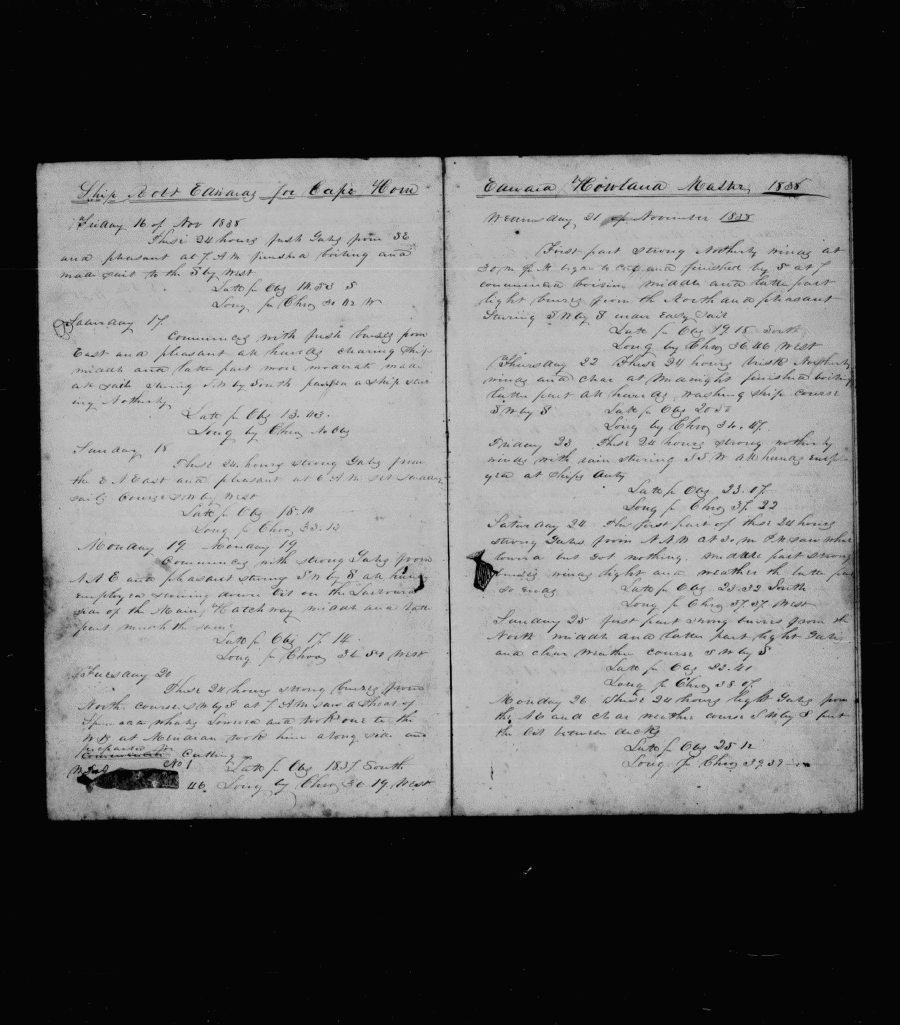 Ship Robt Edwards for Cape Horn
Friday 16 of Nov 1838
These 24 hours fresh Gales from SE
and pleasant at 7 A M finished boiling and
made sail to the S by West
Latt p Obs 14.53 S
Long p Chro 30 42 W
Saturday 17.
Commences with fresh breezes from
East and pleasant all hands clearing Ship
middle and latter part more moderate made
all sail stering S W by South passed a Ship steer
ing Northerly
Latt p Obs 13.43.
Long by Chro No Obs
Sunday 18
These 24 hours strong Gales from
the E N East and pleasant at 6 A M set steering
sails Course S W by West
Latt p Obs 15.14
Long p Chro 33.12
Monday 19. Monday 19
Commences with strong Gales from
N N E and pleasant stering S W by S all hands
employed stowing down Oil on the Larboard
side of the Main Hatchway middle and latter
part much the same
Latt p Obs 17.14.
Long p Chro 34 50 West
Tuesday 20
These 24 hours strong breezes from
North course S W by S at 7 A M saw a Shoal of
Sperm whales lowered and took one to the
W B at Meridian took him along side and
prepared for
Cutting
No 1 Latt p Obs 18 37 South
46. Long by Chro 36.19. West
Edward Howland Master 1838
Wednesday 21 of November 1838
First part strong Northerly winds at
30 m P M began to cut and finished by 5 at 7
commenced boiling middle and latter part
light breezes from the North and pleasant
Stering S W by S under easy sail
Latt p Obs 19.18 South
Long by Chro 36 46 West
Thursday 22 These 24 hours brisk Northerly
winds and clear at Midnight finished boiling
latter part all hands washing ship course
S W by S Latt p Obs 20 50
Long by Chro 34.47.
Friday 23 These 24 hours strong northerly
winds with rain stering S S W all hands emplo
yed at ships duty
Latt p Obs 23.07
Long p Chro 37.22
Saturday 24 The first part of these 24 hours
strong Gales from N N W at 30 m P M saw whales
lowerd but Got nothing. Middle part strong
breezes winds light and weather the latter part
So ends Latt p Obs 23.32 South
Long p Chro 37.37 West
Sunday 25 first part strong breezes from the
North middle and latter part light Gales
and clear weather course S W by S
Latt p Obs 23.41
Long p Chro 38.07.
Monday 26 These 24 hours light Gales from
the NE and clear weather course S W by S put
the Oil between decks
Latt p Obs 25 12
Long p Chro 39.39